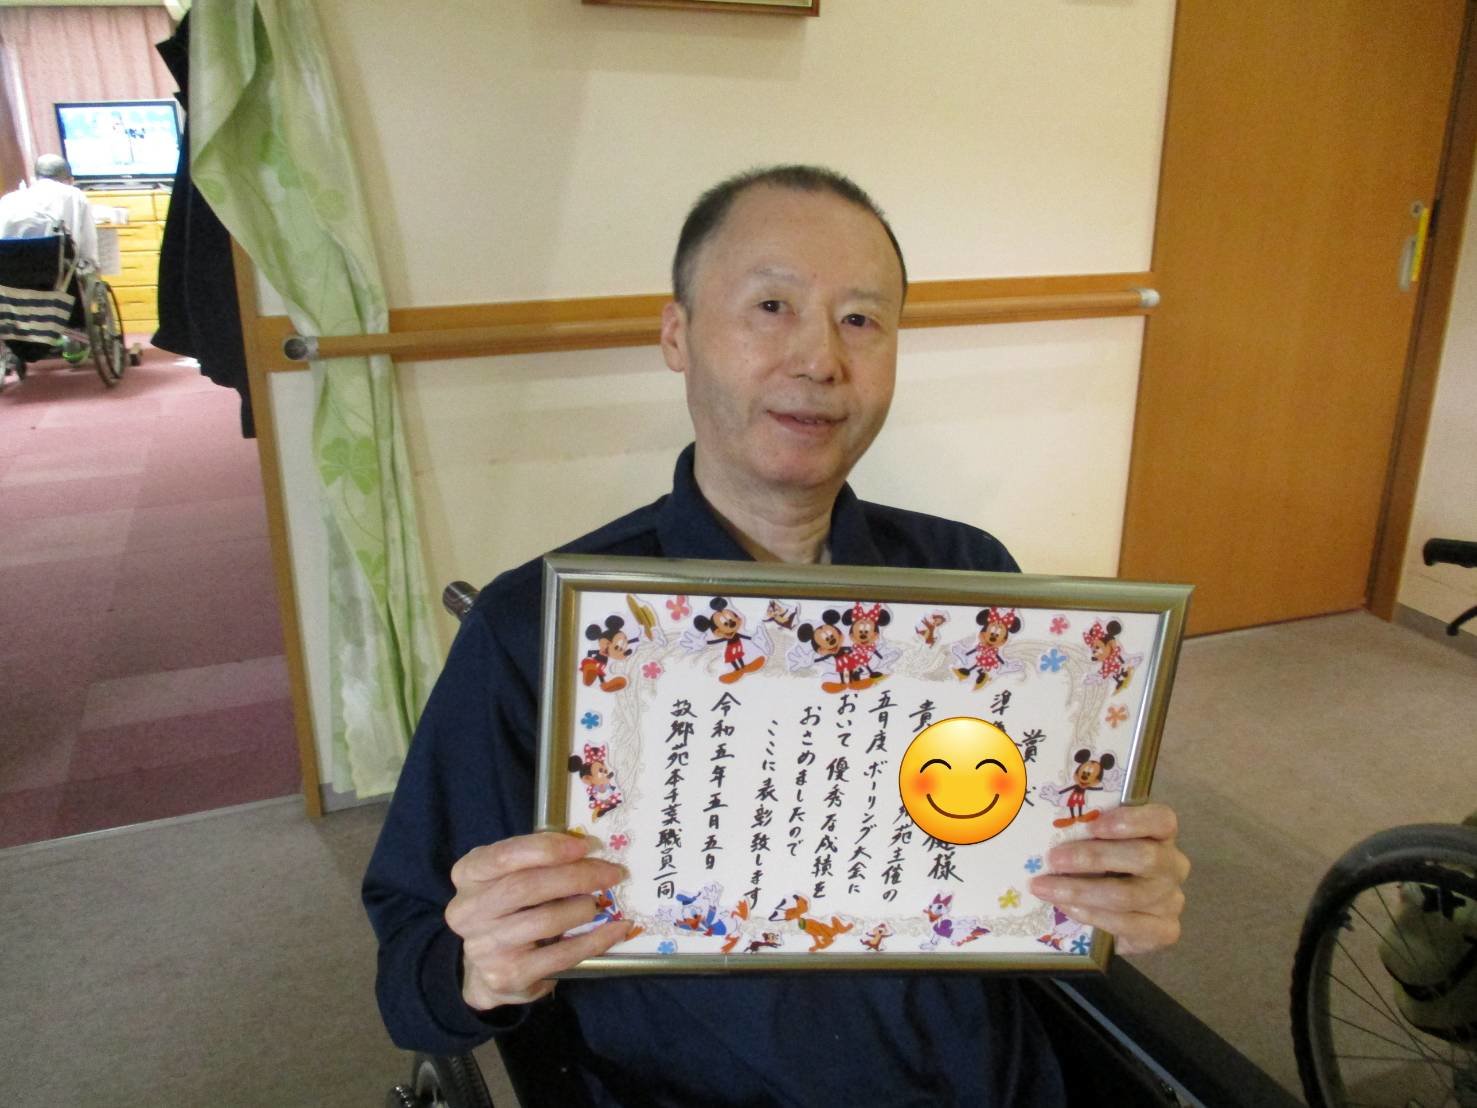 賞
準
貴
苑主催の
様
五月度ボーリング大会に
おいて優秀な成績を
おさめましたので
ここに表彰致します
令和五年五月五日
故郷苑本千葉職員一同